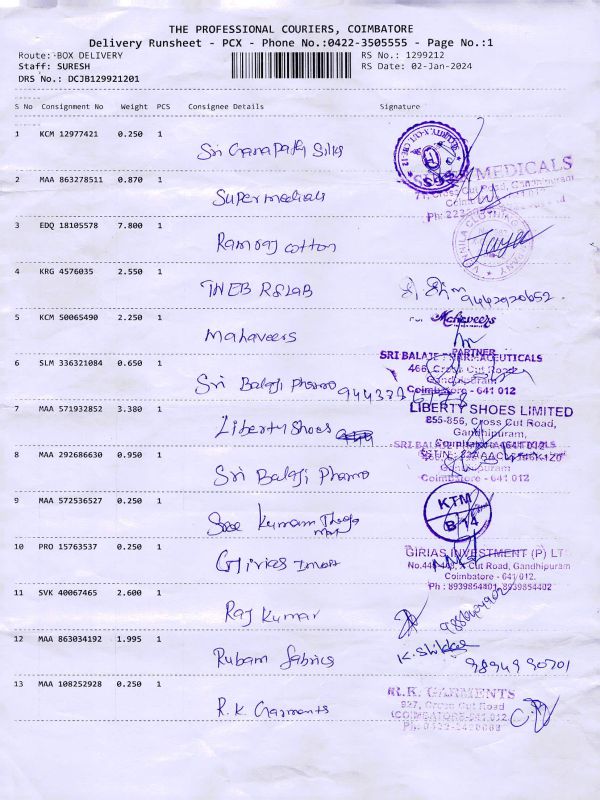 THE PROFESSIONAL COURIERS, COIMBATORE
Delivery Runsheet - PCX - Phone No.:0422-3505555 - Page No.:1
Route: BOX DELIVERY RS No.: 1299212
Staff: SURESH RS Date: 02-Jan-2024
DRS No.: DCJB129921201
S No Consignment No Weight PCS Consignee Details Signature
1 KCM 12977421 0.250 1
Sri Ganapathy Silks
2 MAA 863278511 0.870 1
MEDICALS
Cross Cut Road, Gandhipuram
Super medicals
3 EDQ 18105578 7.800 1
Ramraj cotton
Jaya
4 KRG 4576035 2.550 1
TNEB RSLAB
9442920652
5 KCM 50065490 2.250 1
For Mahaveers
Mahaveers
PARTNER
6 SLM 336321084 0.650 1
SRI BALAJI PHARMACEUTICALS
466, Cross Cut Road
Gandhipuram
Coimbatore - 641 012
Sri Balaji Pharma
7 MAA 571932852 3.380 1
LIBERTY SHOES LIMITED
855-856, Cross Cut Road,
Gandhipuram,
Coimbatore - 641 012
Liberty Shoes
8 MAA 292686630 0.950 1
SRI BALAJI
Gandhipuram
Coimbatore - 641 012
Sri Balaji Pharma
9 MAA 572536527 0.250 1
KTM
B-14
Sree Kumaran Thanga
10 PRO 15763537 0.250 1
GIRIAS INVESTMENT (P) LT
Cut Road, Gandhipuram
Coimbatore - 641 012.
Ph : 8939854401, 8939854402
Girias
11 SVK 40067465 2.600 1
Raj Kumar
12 MAA 863034192 1.995 1
9894990701
Rubam fabrics
13 MAA 108252928 0.250 1
R.K. GARMENTS
927, Cross Cut Road
COIMBATORE-641 012.
R.K. Garments